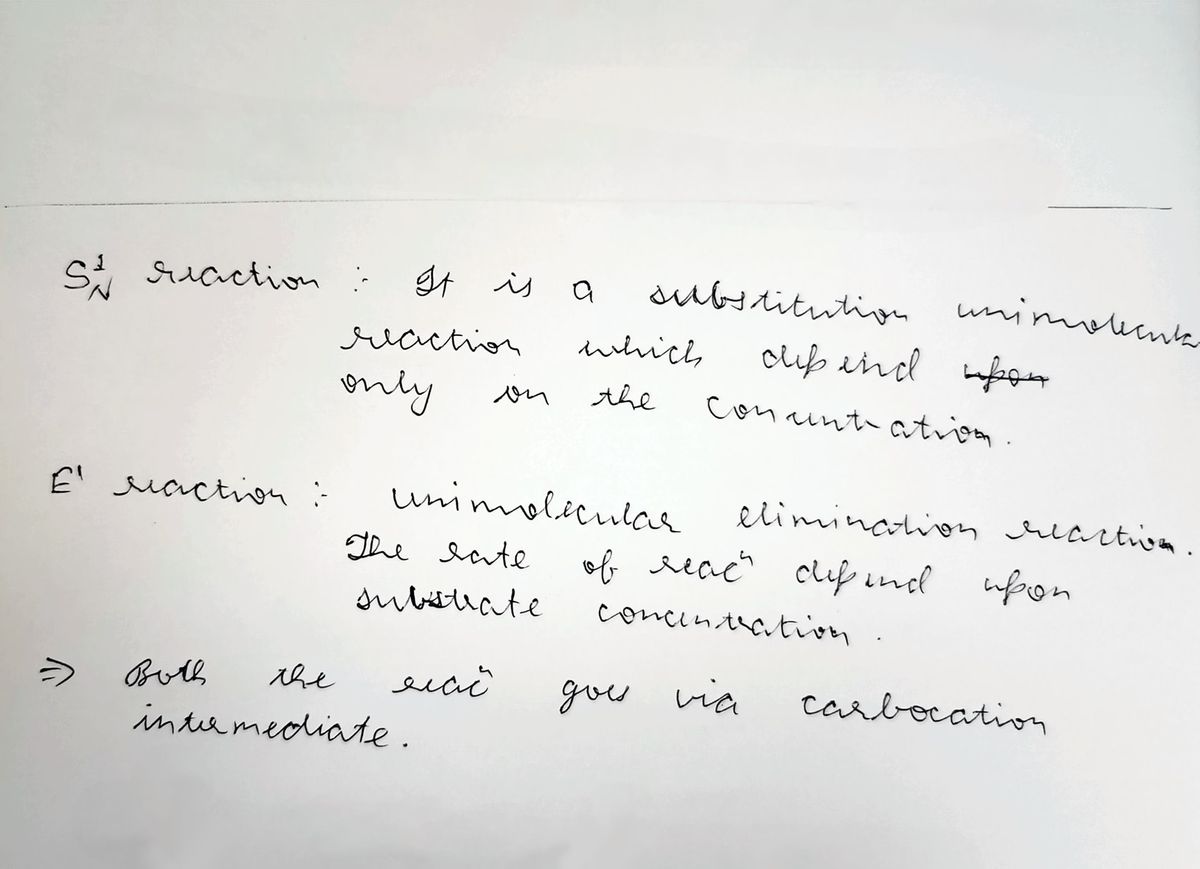 S¹N reaction :- It is a substitution unimolecula
reaction which depend upon
only on the concentration.
E¹ reaction :- unimolecular elimination reaction.
The rate of reacⁿ depend upon
substrate concentration.
⇒ Both the reacⁿ goes via carbocation
intermediate.